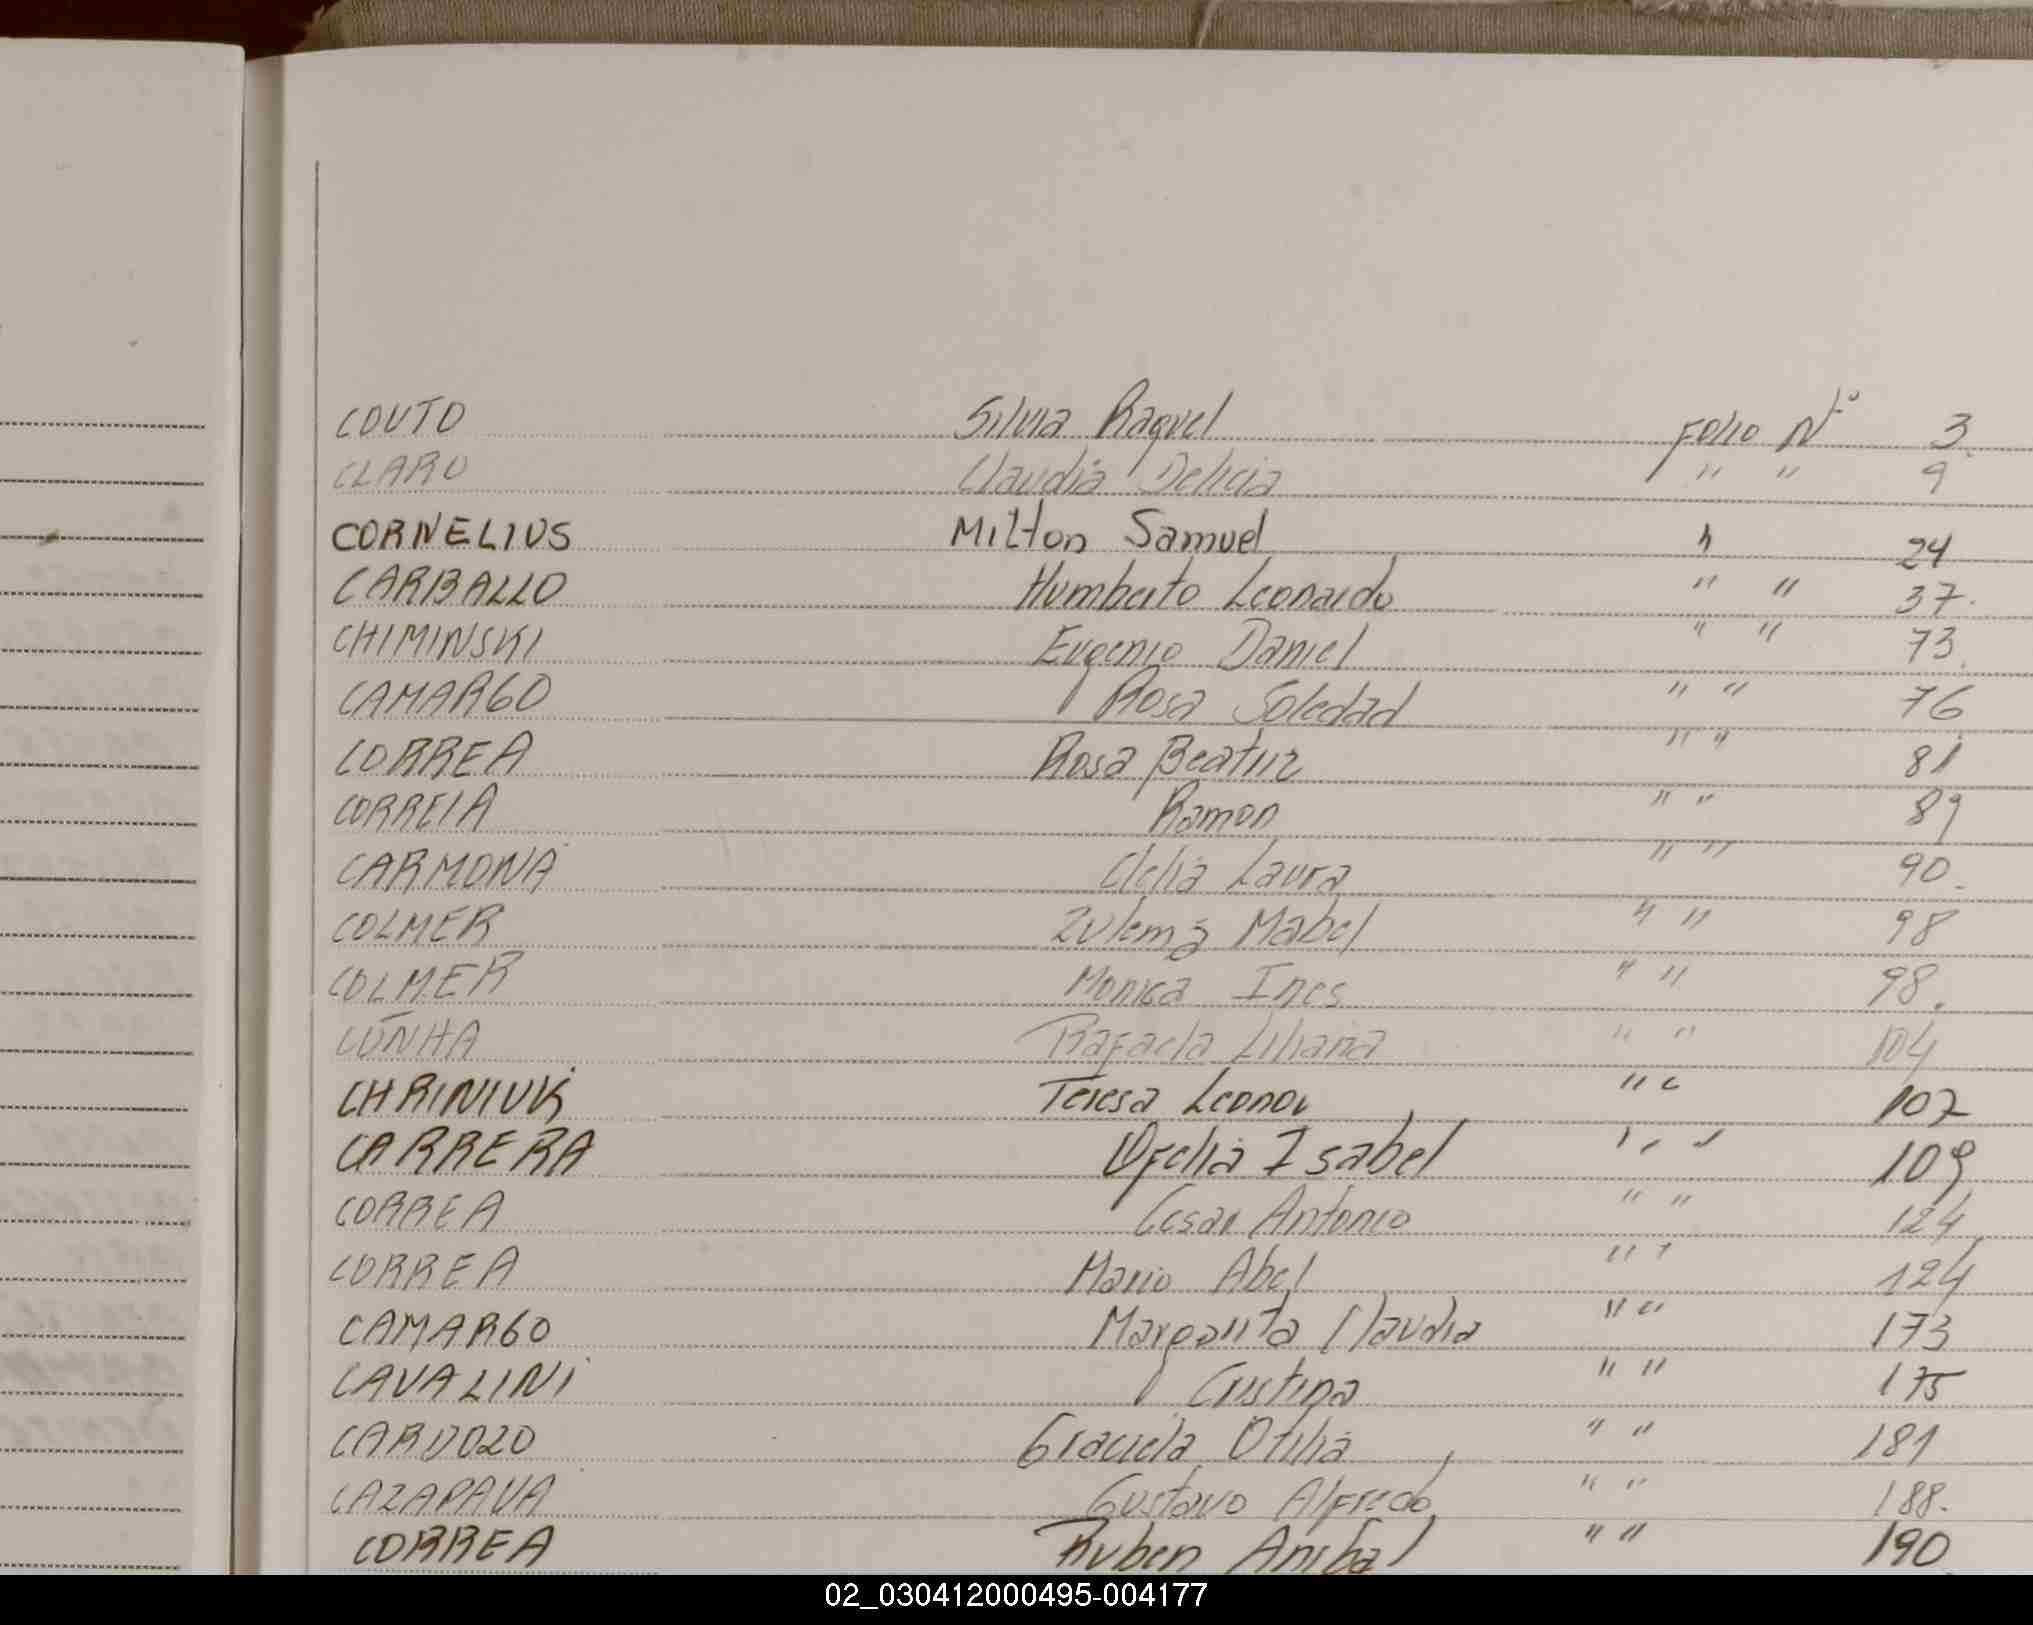 COUTO Silvia Raquel Folio Nº 3.
CLARO Claudia Delicia " " 9
CORNELIUS Milton Samuel " 24
CARBALLO Humberto Leonardo " " 37.
CHIMINSKI Eugenio Daniel " " 73.
CAMARGO Rosa Soledad " " 76
CORREA Rosa Beatriz " " 81
CORREIA Ramon " " 89
CARMONA Clelia Laura " " 90.
COLMER Zulema Mabel " " 98
COLMER Monica Ines " " 98.
CUNHA Rafaela Liliana " " 104
CHRINIUK Teresa Leonor " " 107
CARRERA Ofelia Isabel " " 109
CORREA Cesar Antonio " " 124
CORREA Mario Abel " " 124
CAMARGO Margarita Claudia " " 173
CAVALINI Cristina " " 175
CARDOZO Graciela Otilia " " 181
CAZAPAVA Gustavo Alfredo " " 188.
CORREA Ruben Anibal " " 190
02_030412000495-004177